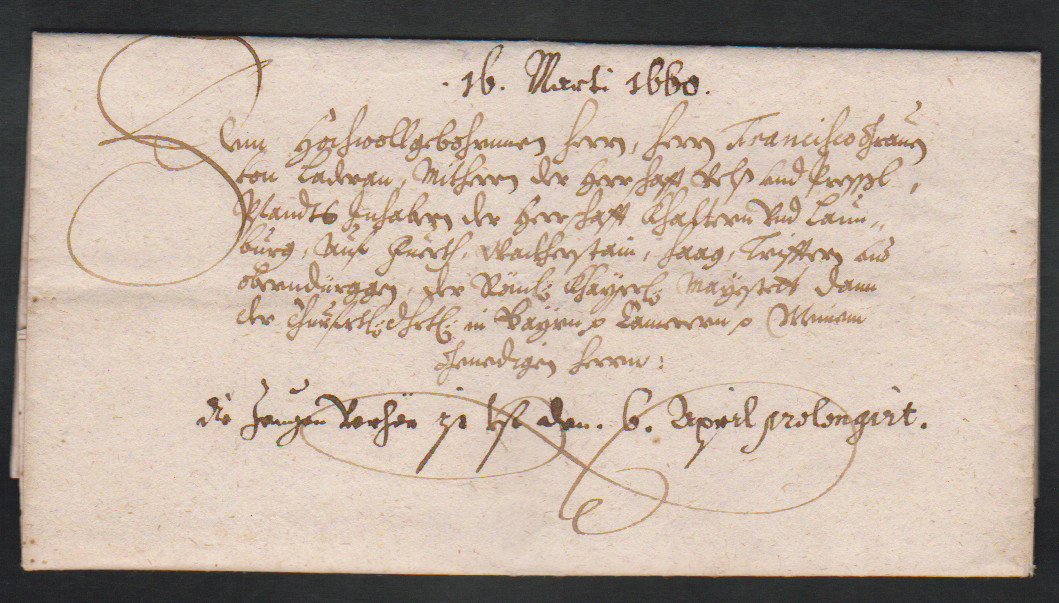 . 16. Marti 1660.
Dem Hochwollgebohrnnen Herrn, Herrn Francisco Graven
von Laderan, Mitherrn der Herrschafft Velß und Presßl,
Pfandts Inhabern der Herrschafft Khastern Und Laun„
burg, Auf Fuerth, Wackherstain, Haag, Trifftern und
oberndürggen, der Römi: Khayserl: Mayestett dann
der Churfrtl: Drtl: in Bayrn p Camerern p Meinem
Genedigen Herrn:
die den. 6. April prolongirt.